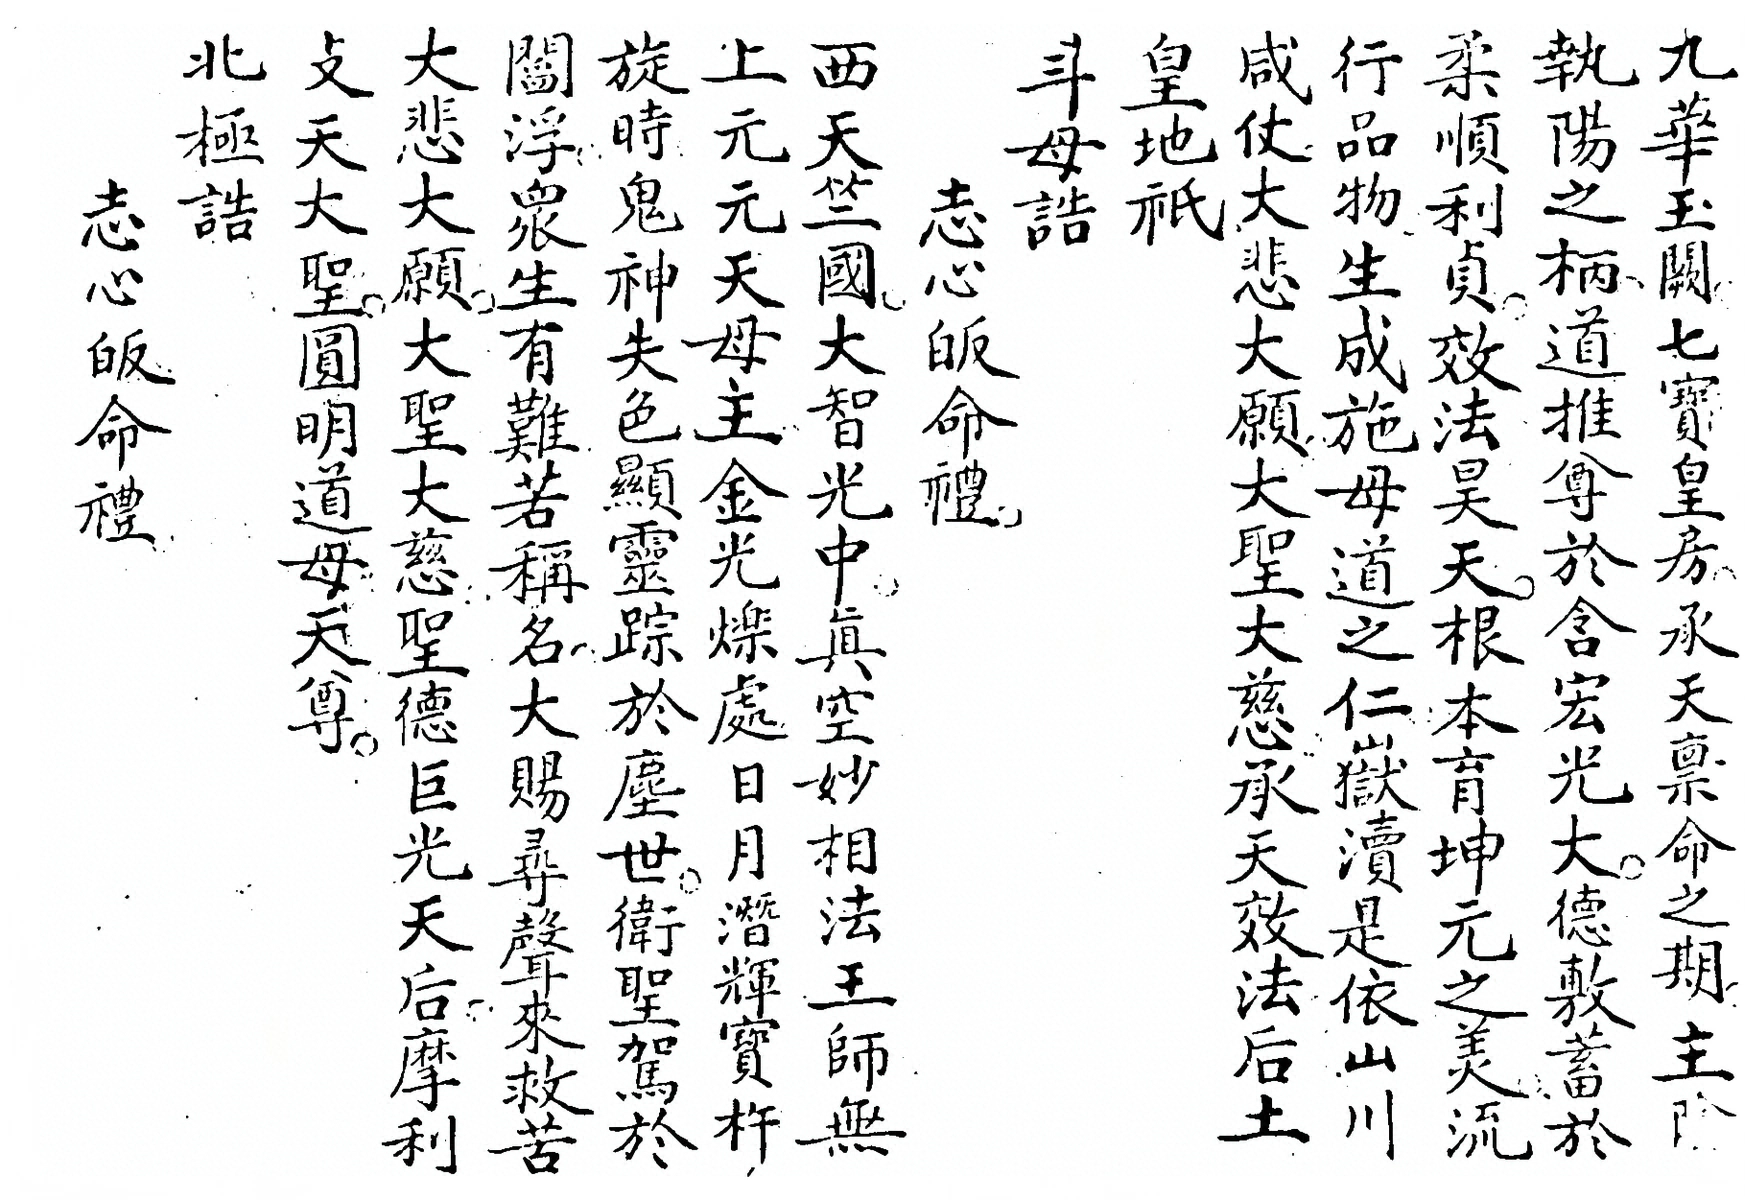 九華玉闕七寶皇房承天禀命之期主陰
執陽之柄道推尊於含宏光大德敷蓄於
柔順利貞效法昊天根本育坤元之美流
行品物生成施母道之仁嶽瀆是依山川
咸仗大悲大願大聖大慈承天效法后土
皇地祇
斗母誥
志心皈命禮
西天竺國大智光中真空妙相法王師無
上元元天母主金光爍處日月潛輝寶杵
旋時鬼神失色顯靈踪於塵世衛聖駕於
閻浮眾生有難若稱名大賜尋聲來救苦
大悲大願大聖大慈聖德巨光天后摩利
攴天大聖圓明道母天尊
北極誥
志心皈命禮